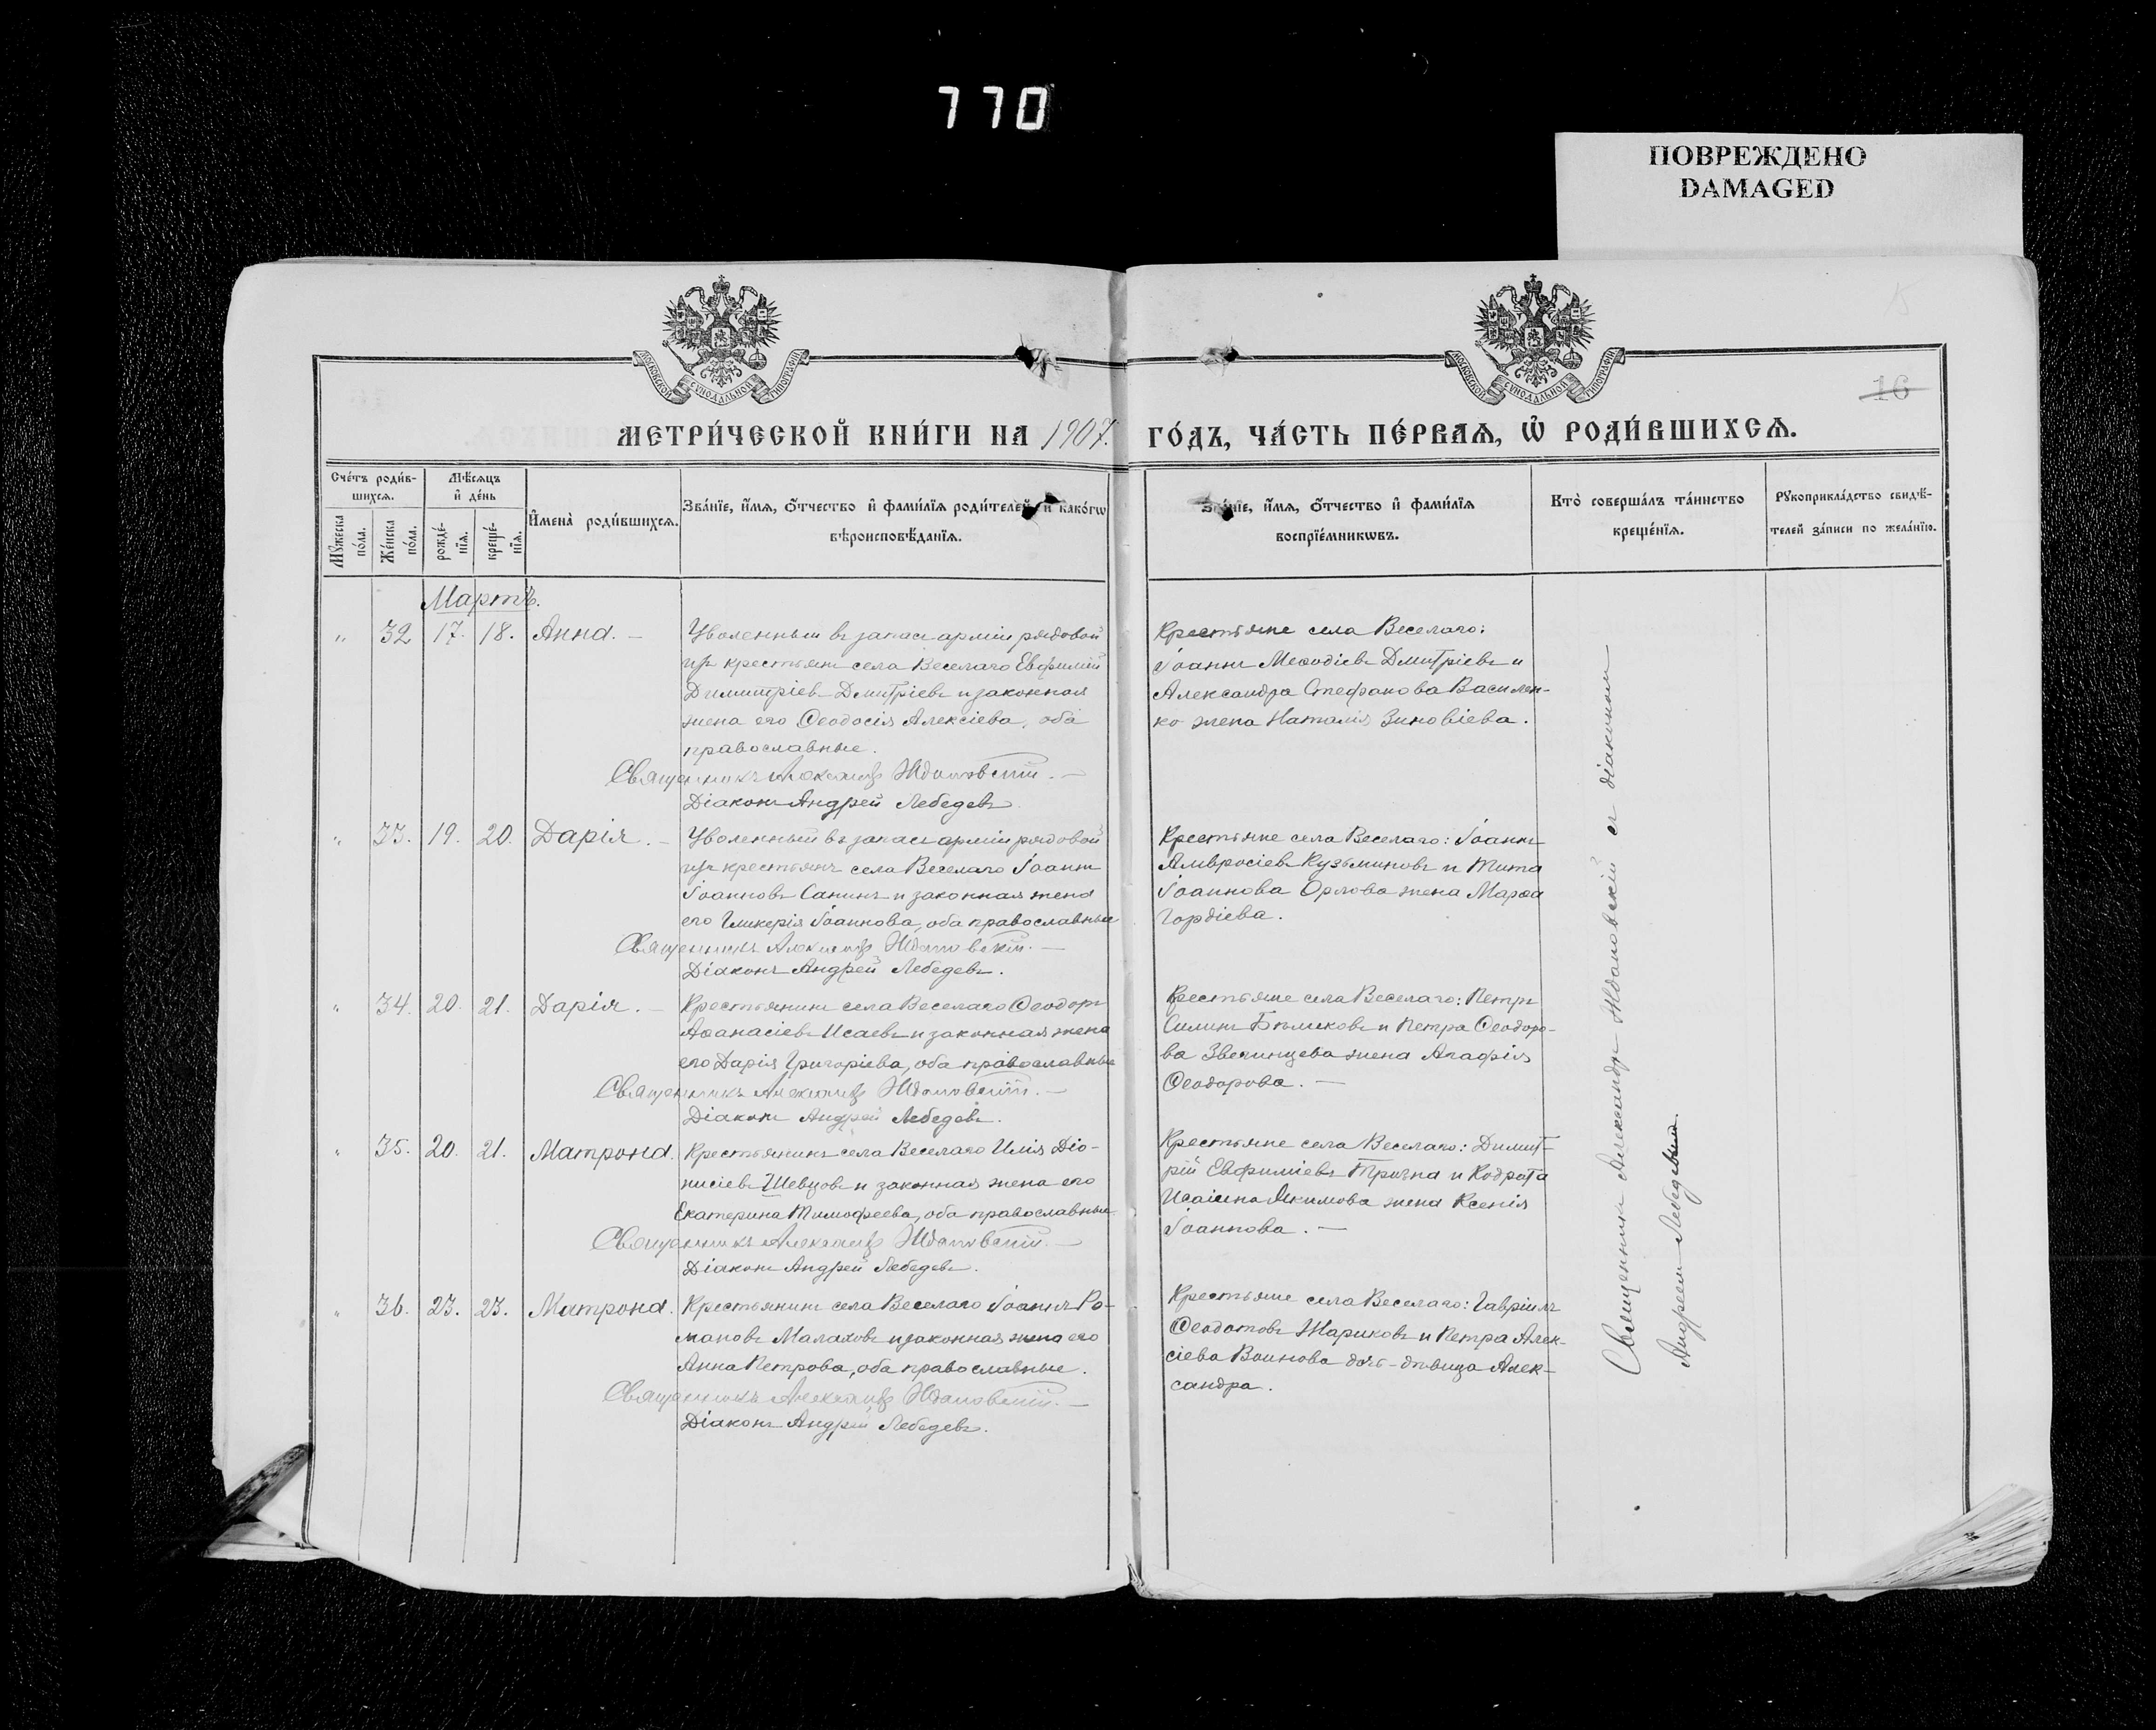 770
ПОВРЕЖДЕНО
DAMAGED
МОСКОВСКОЙ СѴНОДАЛЬНОЙ ТИПОГРАФІИ
МОСКОВСКОЙ СѴНОДАЛЬНОЙ ТИПОГРАФІИ
15
16
МЕТРИ́ЧЕСКОЙ КНИ́ГИ НА 1907.
ГО́ДЪ, ЧА́СТЬ ПЕ́РВАѦ, Ѡ҆ РОДИ́ВШИХСѦ.
Сче́тъ роди́в-
шихсѧ.
Мѣ́сѧцъ
и҆ де́нь
Мꙋ́жеска
по́ла.
Же́нска
по́ла.
рожде́-
нїѧ.
креще́-
нїѧ.
И҆мена̀ роди́вшихсѧ.
Зва́нїе, и҆́мѧ, ѻ҆́тчество и҆ фами́лїѧ роди́телей, и҆ како́гѡ
вѣроисповѣ́данїѧ.
Зва́нїе, и҆́мѧ, ѻ҆́тчество и҆ фами́лїѧ
воспрїе́мникѡвъ.
Кто̀ соверша́лъ та́инство
креще́нїѧ.
Рꙋкоприкла́дство свидѣ́-
телей за́писи по жела́нїю.
Мартъ.
" 32 17. 18. Анна. –
Уволенный въ запасъ арміи рядовой
изъ крестьянъ села Веселаго Евфимій
Димитріевъ Дмитріевъ и законная
жена его Ѳеодосія Алексіева, оба
православные.
Священникъ Александръ Ждановскій. –
Діаконъ Андрей Лебедевъ.
Крестьяне села Веселаго:
Іоаннъ Меѳодіевъ Дмитріевъ и
Александра Стефанова Василен-
ко жена Наталія Зиновіева.
" 33. 19. 20. Дарія. –
Уволенный въ запасъ арміи рядовой
изъ крестьянъ села Веселаго Іоаннъ
Іоанновъ Санинъ и законная жена
его Гликерія Іоаннова, оба православные
Священникъ Александръ Ждановскій. –
Діаконъ Андрей Лебедевъ.
Крестьяне села Веселаго: Іоаннъ
Амвросіевъ Кузьминовъ и Тита
Іоаннова Орлова жена Марѳа
Гордіева.
" 34. 20. 21. Дарія. –
Крестьянинъ села Веселаго Ѳеодоръ
Аѳанасіевъ Исаевъ и законная жена
его Дарія Григоріева, оба православные
Священникъ Александръ Ждановскій. –
Діаконъ Андрей Лебедевъ.
Крестьяне села Веселаго: Петръ
Силинъ Бѣликовъ и Петра Ѳеодоро-
ва Звегинцева жена Агафія
Ѳеодорова. –
" 35. 20. 21. Матрона.
Крестьянинъ села Веселаго Илія Діо-
нисіевъ Шевцовъ и законная жена его
Екатерина Тимофеева, оба православные.
Священникъ Александръ Ждановскій. –
Діаконъ Андрей Лебедевъ.
Крестьяне села Веселаго: Димит-
рій Евфиміевъ и Кодрата
Якимова жена Ксенія
Іоаннова. –
" 36. 23. 23. Матрона.
Крестьянинъ села Веселаго Іоаннъ Ро-
мановъ Малаховъ и законная жена его
Анна Петрова, оба православные.
Священникъ Александръ Ждановскій. –
Діаконъ Андрей Лебедевъ.
Крестьяне села Веселаго: Гавріилъ
Ѳеодотовъ Жариковъ и Петра Алек-
сіева Воинова дочь-дѣвица Алек-
сандра.
Священникъ Александръ Ждановскій съ діакономъ
Андреемъ Лебедевымъ.